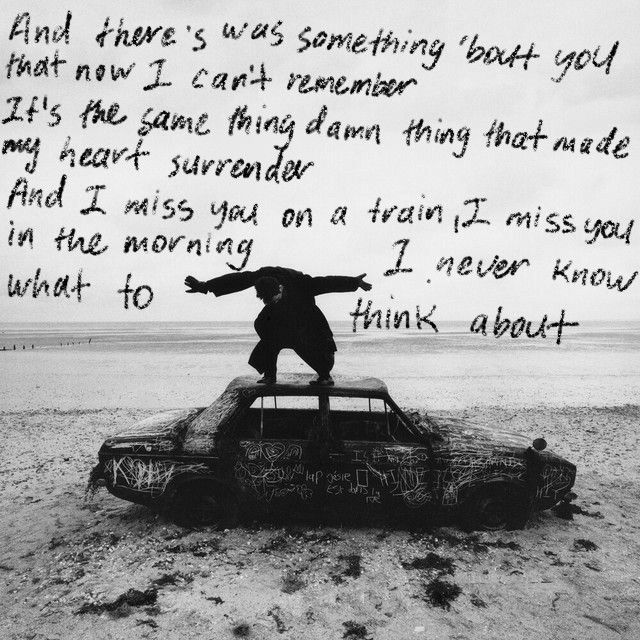 And there's was something 'bout you
that now I can't remember
It's the same thing damn thing that made
my heart surrender
And I miss you on a train, I miss you
in the morning I never know
what to think about